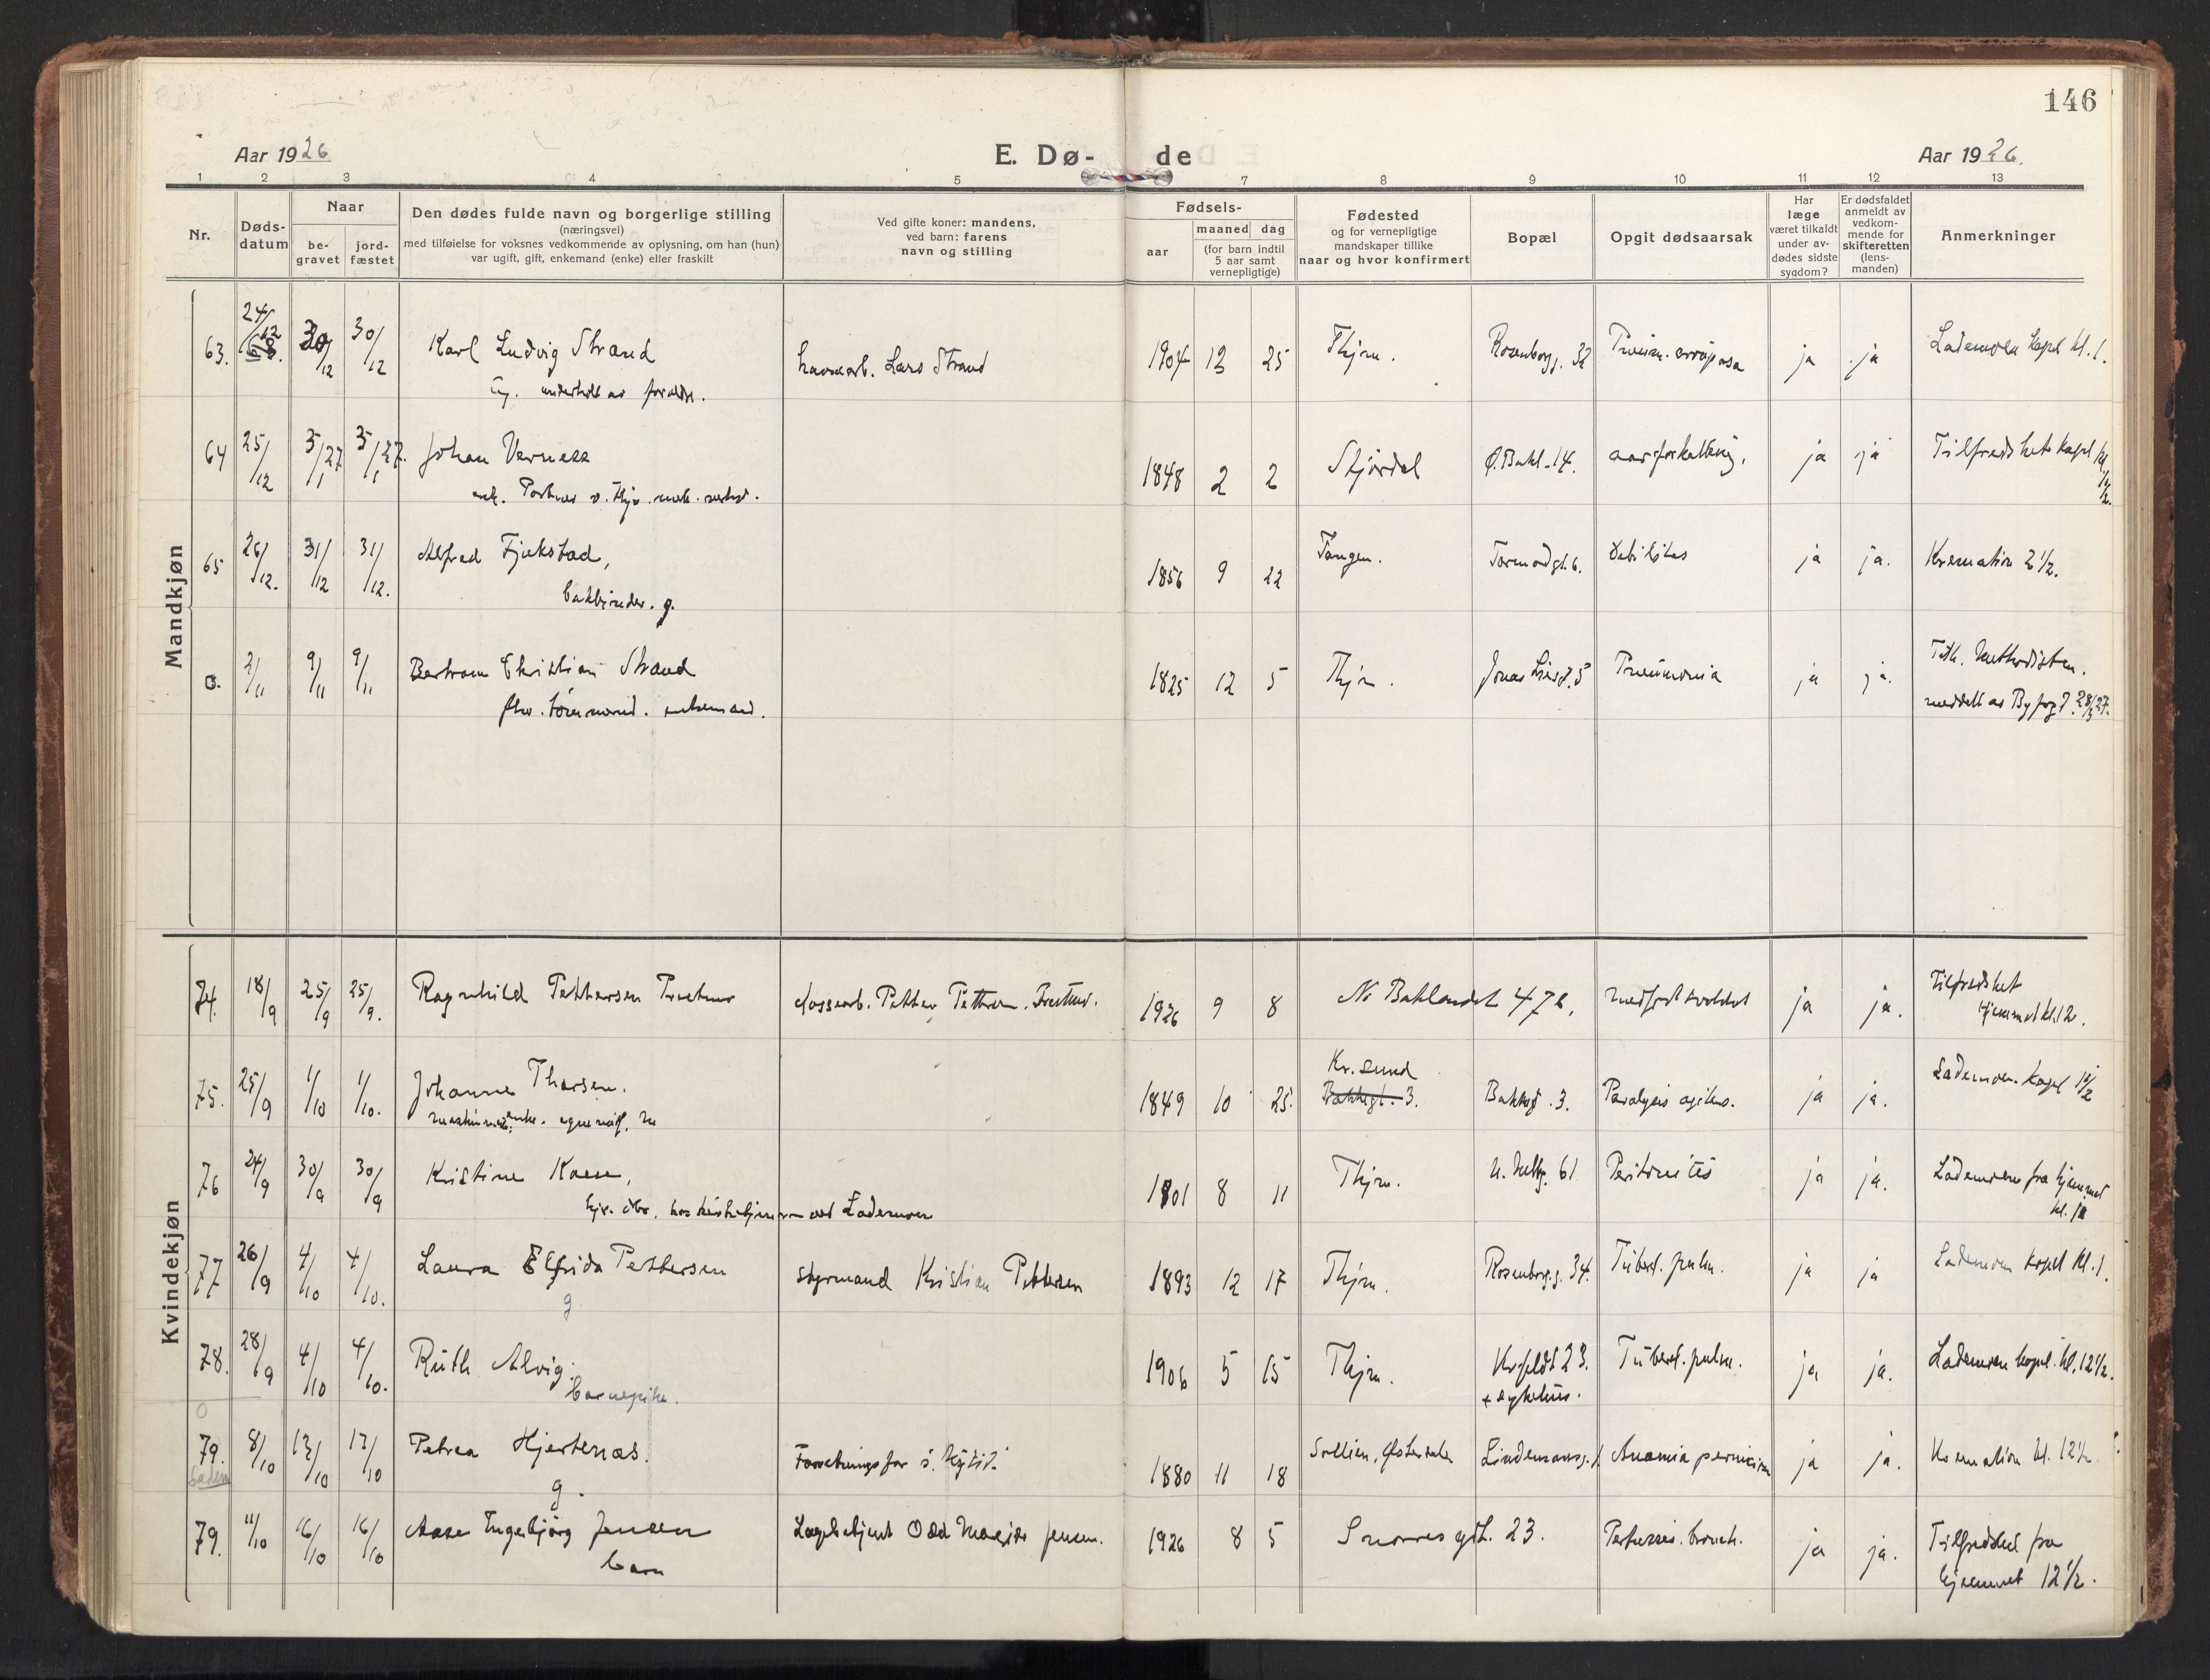 146
Aar 1926
E. Dø-
de
Aar 1926.
1 2 3 4 5 7 8 9 10 11 12 13
Nr.
Døds-
datum
Naar
be-
gravet
jord-
fæstet
Den dødes fulde navn og borgerlige stilling
(næringsvei)
med tilføielse for voksnes vedkommende av oplysning, om han (hun)
var ugift, gift, enkemand (enke) eller fraskilt
Ved gifte koner: mandens,
ved barn: farens
navn og stilling
Fødsels-
aar
maaned dag
(for barn indtil
5 aar samt
vernepligtige)
Fødested
og for vernepligtige
mandskaper tillike
naar og hvor konfirmert
Bopæl
Opgit dødsaarsak
Har
læge
været tilkaldt
under av-
dødes sidste
sygdom?
Er dødsfaldet
anmeldt av
vedkom-
mende for
skifteretten
(lens-
manden)
Anmerkninger
Mandkjøn
63. 24/12 30/12 30/12 Karl Ludvig Strand havnearb. Lars Strand 1904 12 25 Thjm. Rosenborgg. 32 Pneum. ja ja Lademoen kapel kl. 1.
ug.
64 25/12 3/1 27 3/1 27. Johan Verness 1848 2 2 Stjørdal Ø. Bakl. 14. aareforkalkning, ja ja Tilfredshet kapel kl.
enk. Portner v. Thjs. mek. verksd.
65 26/12. 31/12 31/12. Alfred Fjekstad, 1856 9 22 Tangen. Tormodgt. 6. debilitas ja ja. Kremation 2 1/2.
bokbinder. g.
0. 2/11 9/11 9/11 Bertram Christian Strand 1825 12 5 Thjm. Jonas Liesgt. 5 Pneumonia ja ja. Tilh. Methodisten.
fhv. tømmermd. enkemand. meddelt av Byfogd. 28/3 27.
Kvindekjøn
74. 18/9 25/9 25/9. Ragnhild Pettersen 1926 9 8 N. Baklandet 47 b, medfødt svakhet ja ja. Tilfredshet
Hjemmet kl. 12.
75. 25/9 1/10 1/10. Johanne Thorsen. 1849 10 25. Kr.sund Bakkegt. 3. Paralysis agitans. ja ja. Lademoen kapel
Bakkegt. 3.
76 24/9 30/9 30/9 Kristine Kaen, 1901 8 11 Thjm. 61 Peritonitis ja ja. Lademoen fra hjemmet
Lademoen
77 26/9 4/10 4/10. Laura Elfrida Pettersen styrmand Kristian Pettersen 1893 12 17 Thjm. Rosenborgg. 34. Tuberk. pulm. ja ja Lademoen kapel kl. 1.
g
78. 28/9 4/10 4/10. Ruth Alvig. 1906 5 15 Thjm. 23. Tuberk. pulm. ja ja. Lademoen kapel. kl. 12 1/2.
barnepike. + sykehus.
79. 8/10 13/10 13/10 Petrea Hjertenæs. 1880 11 18 Sollien, Østerdalen Lindemansg. 1. Anæmia perniciosa ja ja. Kremation kl. 12 1/2.
g.
79. 11/10 16/10 16/10 Aase Ingebjørg Jensen Lagerbetjent Odd Jensen. 1926 8 5 Snorres gt. 23. Pertussis. bronch. ja ja. Tilfredshet fra
barn hjemmet 12 1/2.